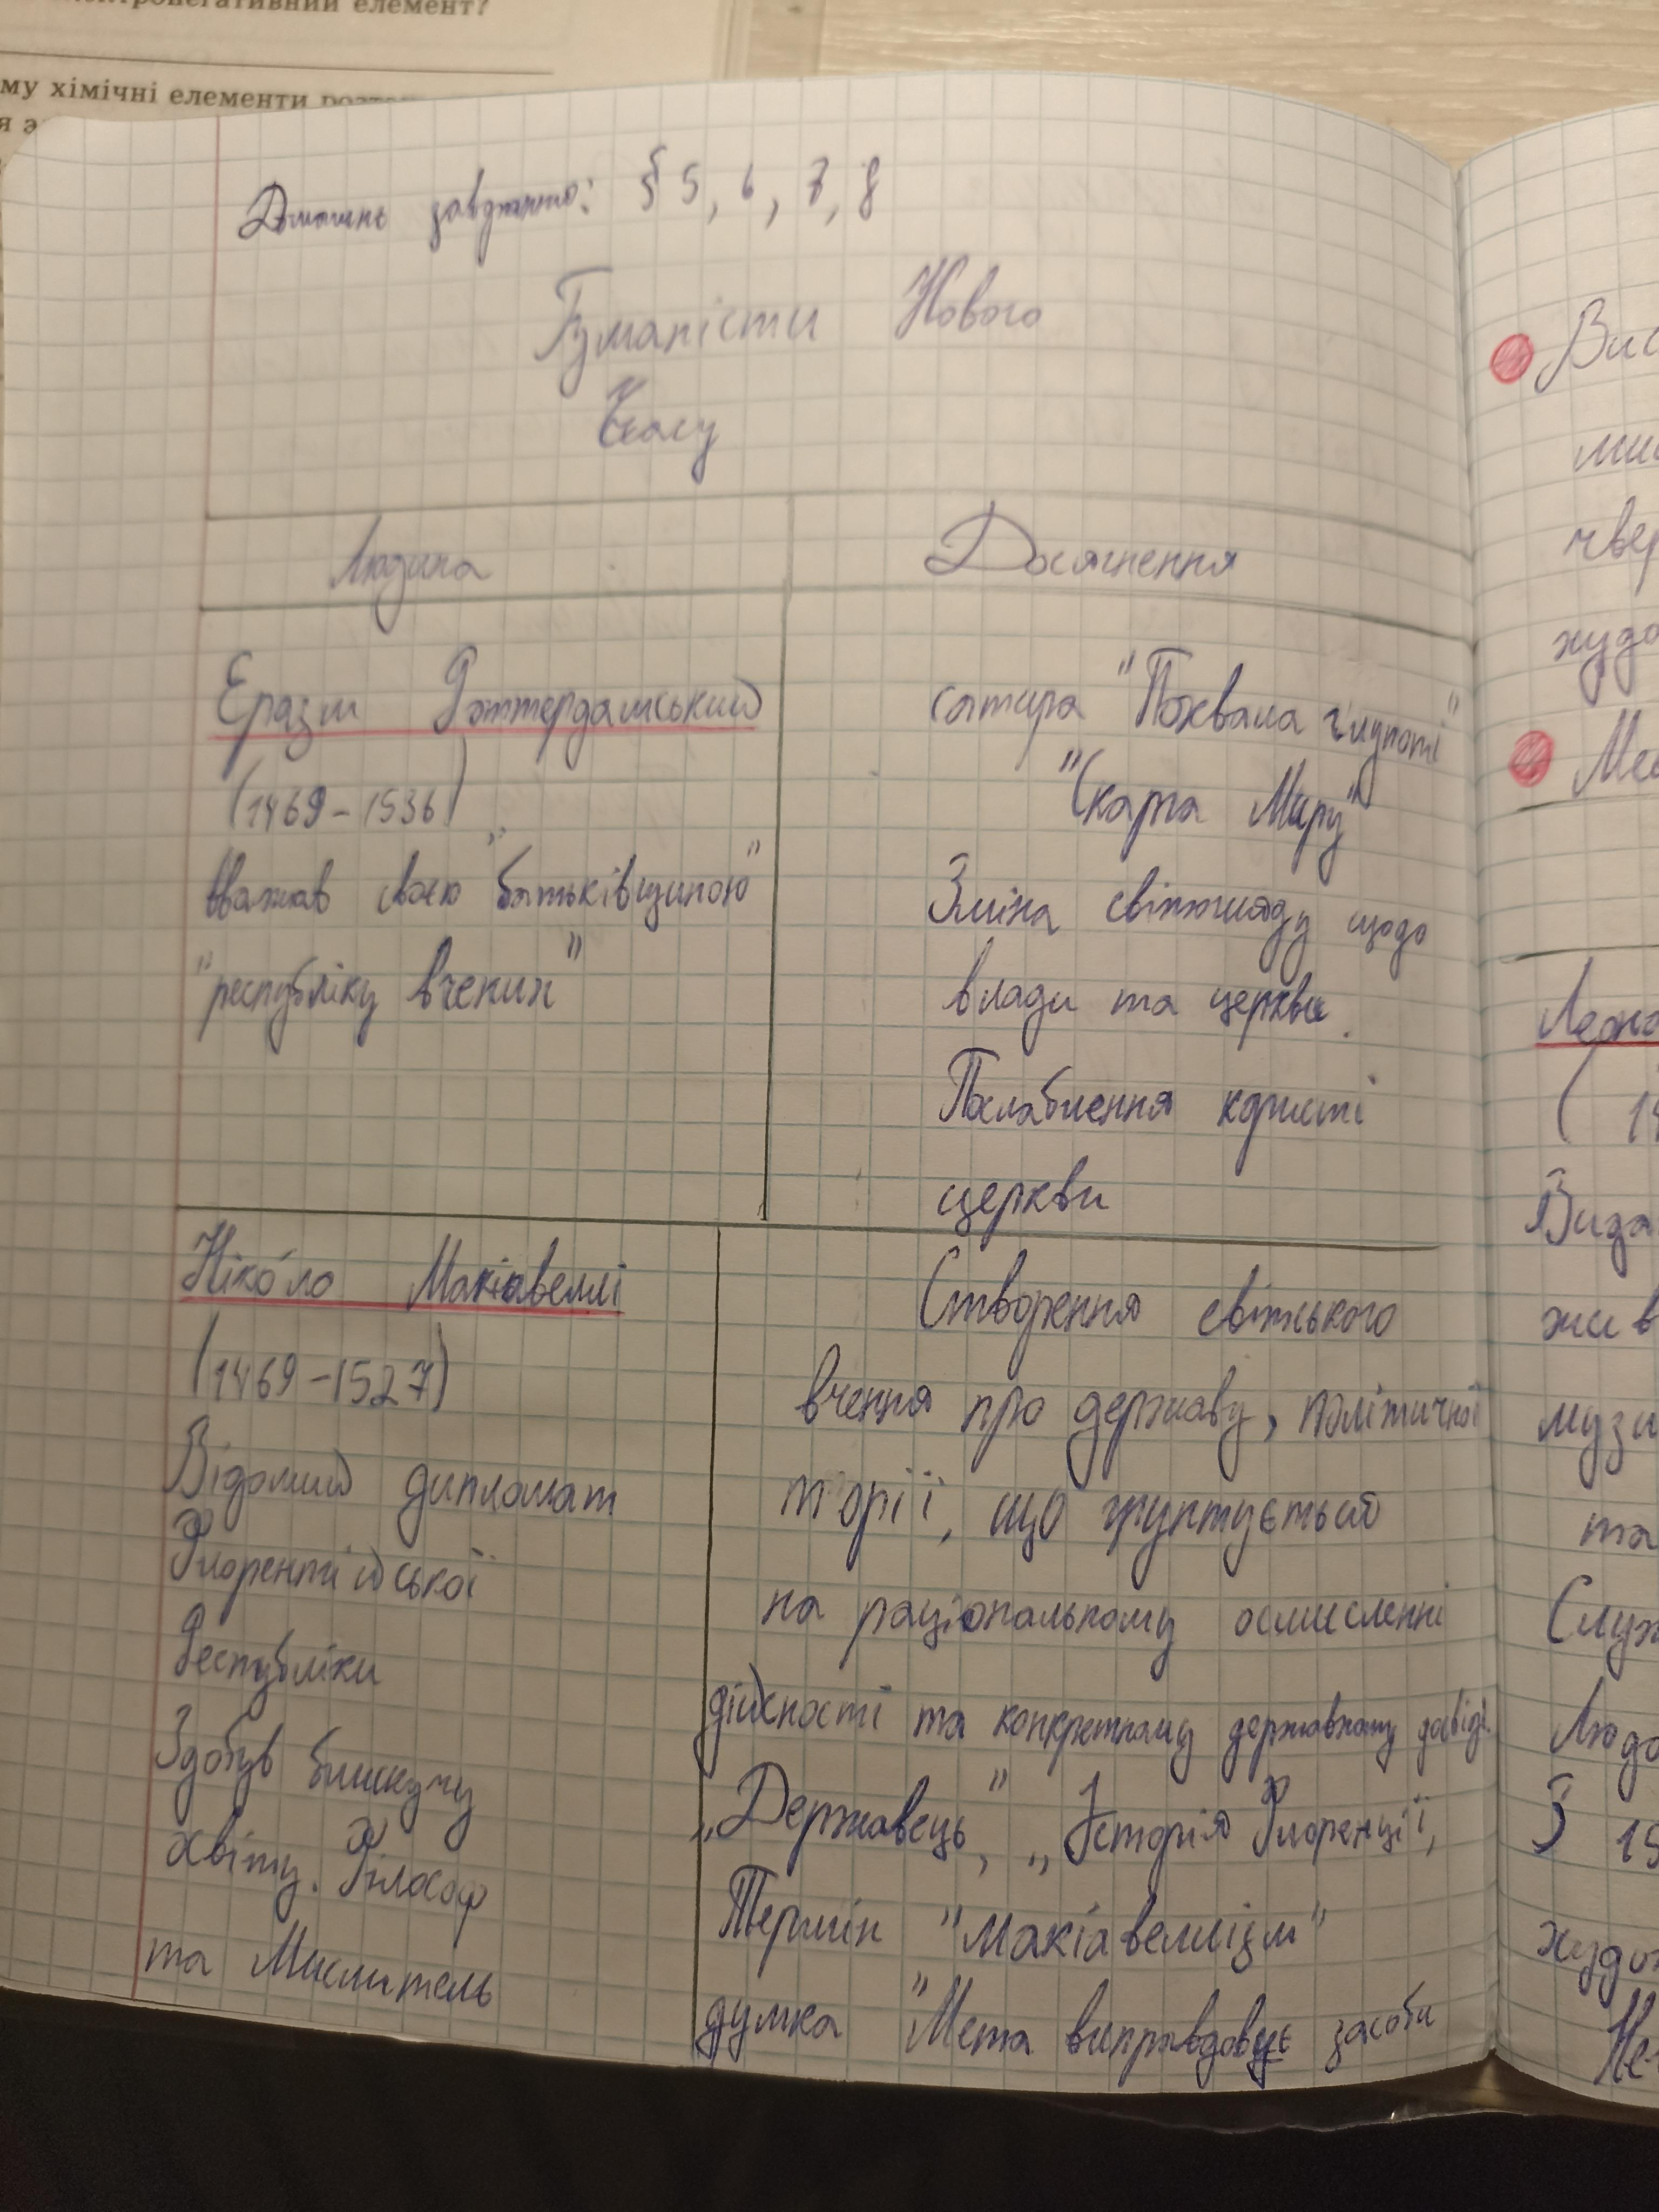 електронегативний елемент?
му хімічні елементи
Домашнє завдання: § 5, 6, 7, 8
Гуманісти Нового
Часу
Людина
Досягнення
Еразм Роттердамський
(1469-1536)
вважав своєю "батьківщиною"
"республіку вчених"
сатира "Похвала глупоті"
"Скарга Миру"
Зміна світогляду щодо
влади та церкви.
Послаблення користі
церкви
Ніко́ло Макіавеллі
(1469-1527)
Відомий дипломат
Флорентійської
Республіки
Здобув блискучу
освіту. Філософ
та Мислитель
Створення світського
вчення про державу, політичної
теорії, що ґрунтується
на раціональному осмисленні
дійсності та конкретному державному досвіді.
„Державець", „Історія Флоренції,
Термін "макіавеллізм"
думка "Мета виправдовує засоби
Вис
ми
твер
худо
Ме
Леона
( 14
Вида
жив
музи
та
Служ
Людо
З 15
худож